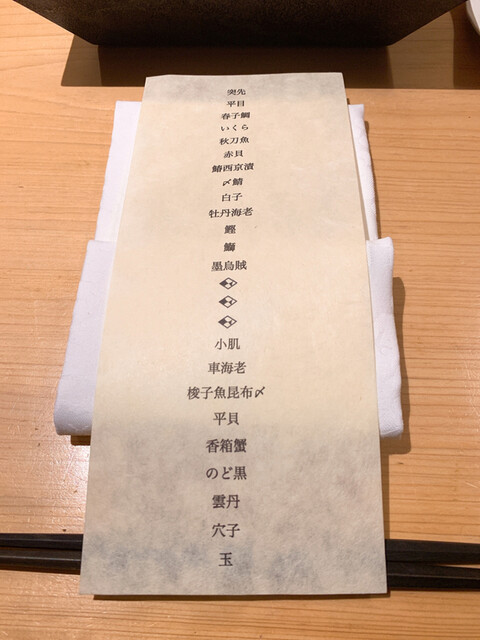 突先
平目
春子鯛
いくら
秋刀魚
赤貝
鰆西京漬
〆鯖
白子
牡丹海老
鰹
鰤
墨烏賊
小肌
車海老
梭子魚昆布〆
平貝
香箱蟹
のど黒
雲丹
穴子
玉